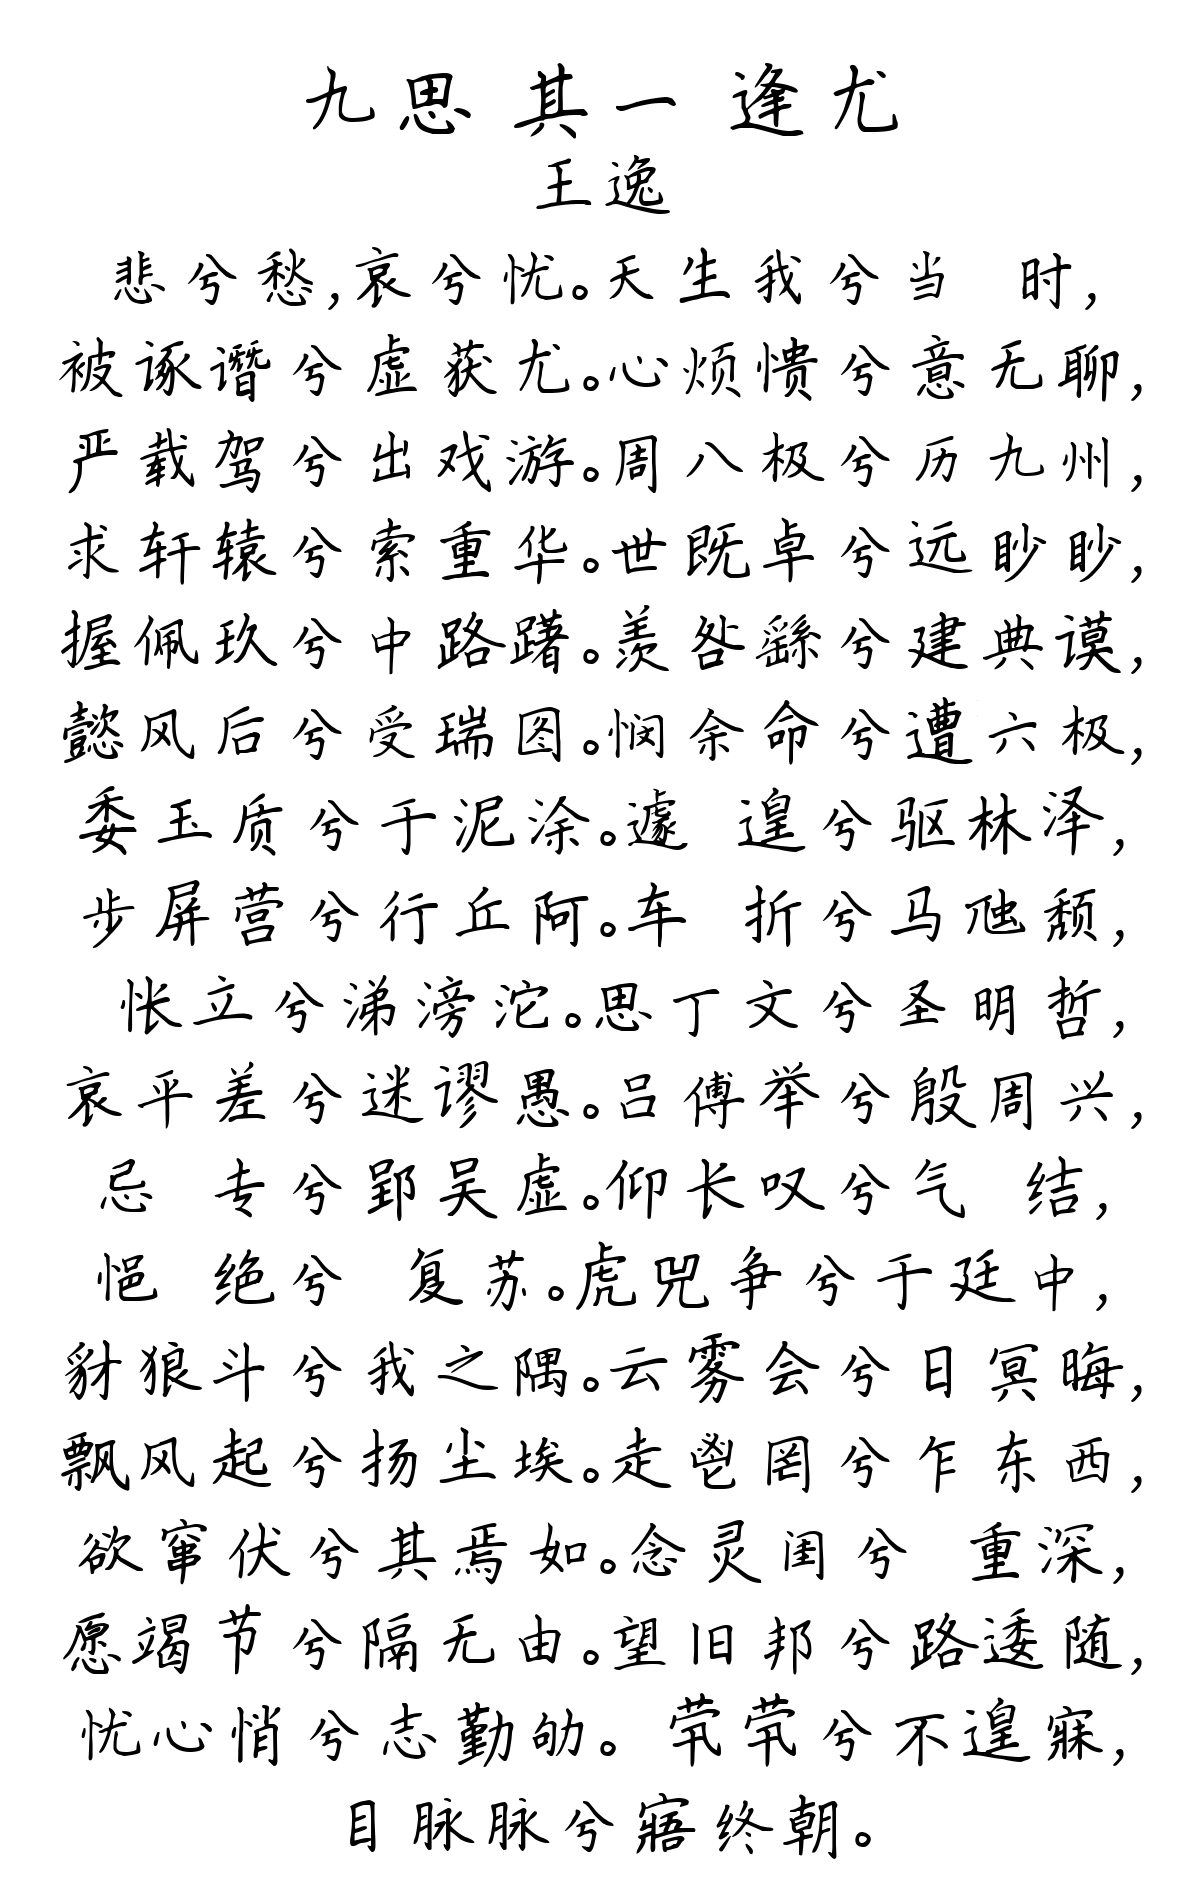 九思 其一 逢尤
王逸
悲兮愁,哀兮忧。天生我兮当 时,
被诼谮兮虚获尤。心烦愦兮意无聊,
严载驾兮出戏游。周八极兮历九州,
求轩辕兮索重华。世既卓兮远眇眇,
握佩玖兮中路躇。羡咎繇兮建典谟,
懿风后兮受瑞图。悯余命兮遭六极,
委玉质兮于泥涂。遽 遑兮驱林泽,
步屏营兮行丘阿。车 折兮马虺颓,
怅立兮涕滂沱。思丁文兮圣明哲,
哀平差兮迷谬愚。吕傅举兮殷周兴,
忌 专兮郢吴虚。仰长叹兮气 结,
悒 绝兮 复苏。虎兕争兮于廷中,
豺狼斗兮我之隅。云雾会兮日冥晦,
飘风起兮扬尘埃。走鬯罔兮乍东西,
欲窜伏兮其焉如。念灵闺兮 重深,
愿竭节兮隔无由。望旧邦兮路逶随,
忧心悄兮志勤劬。 茕茕兮不遑寐,
目脉脉兮寤终朝。